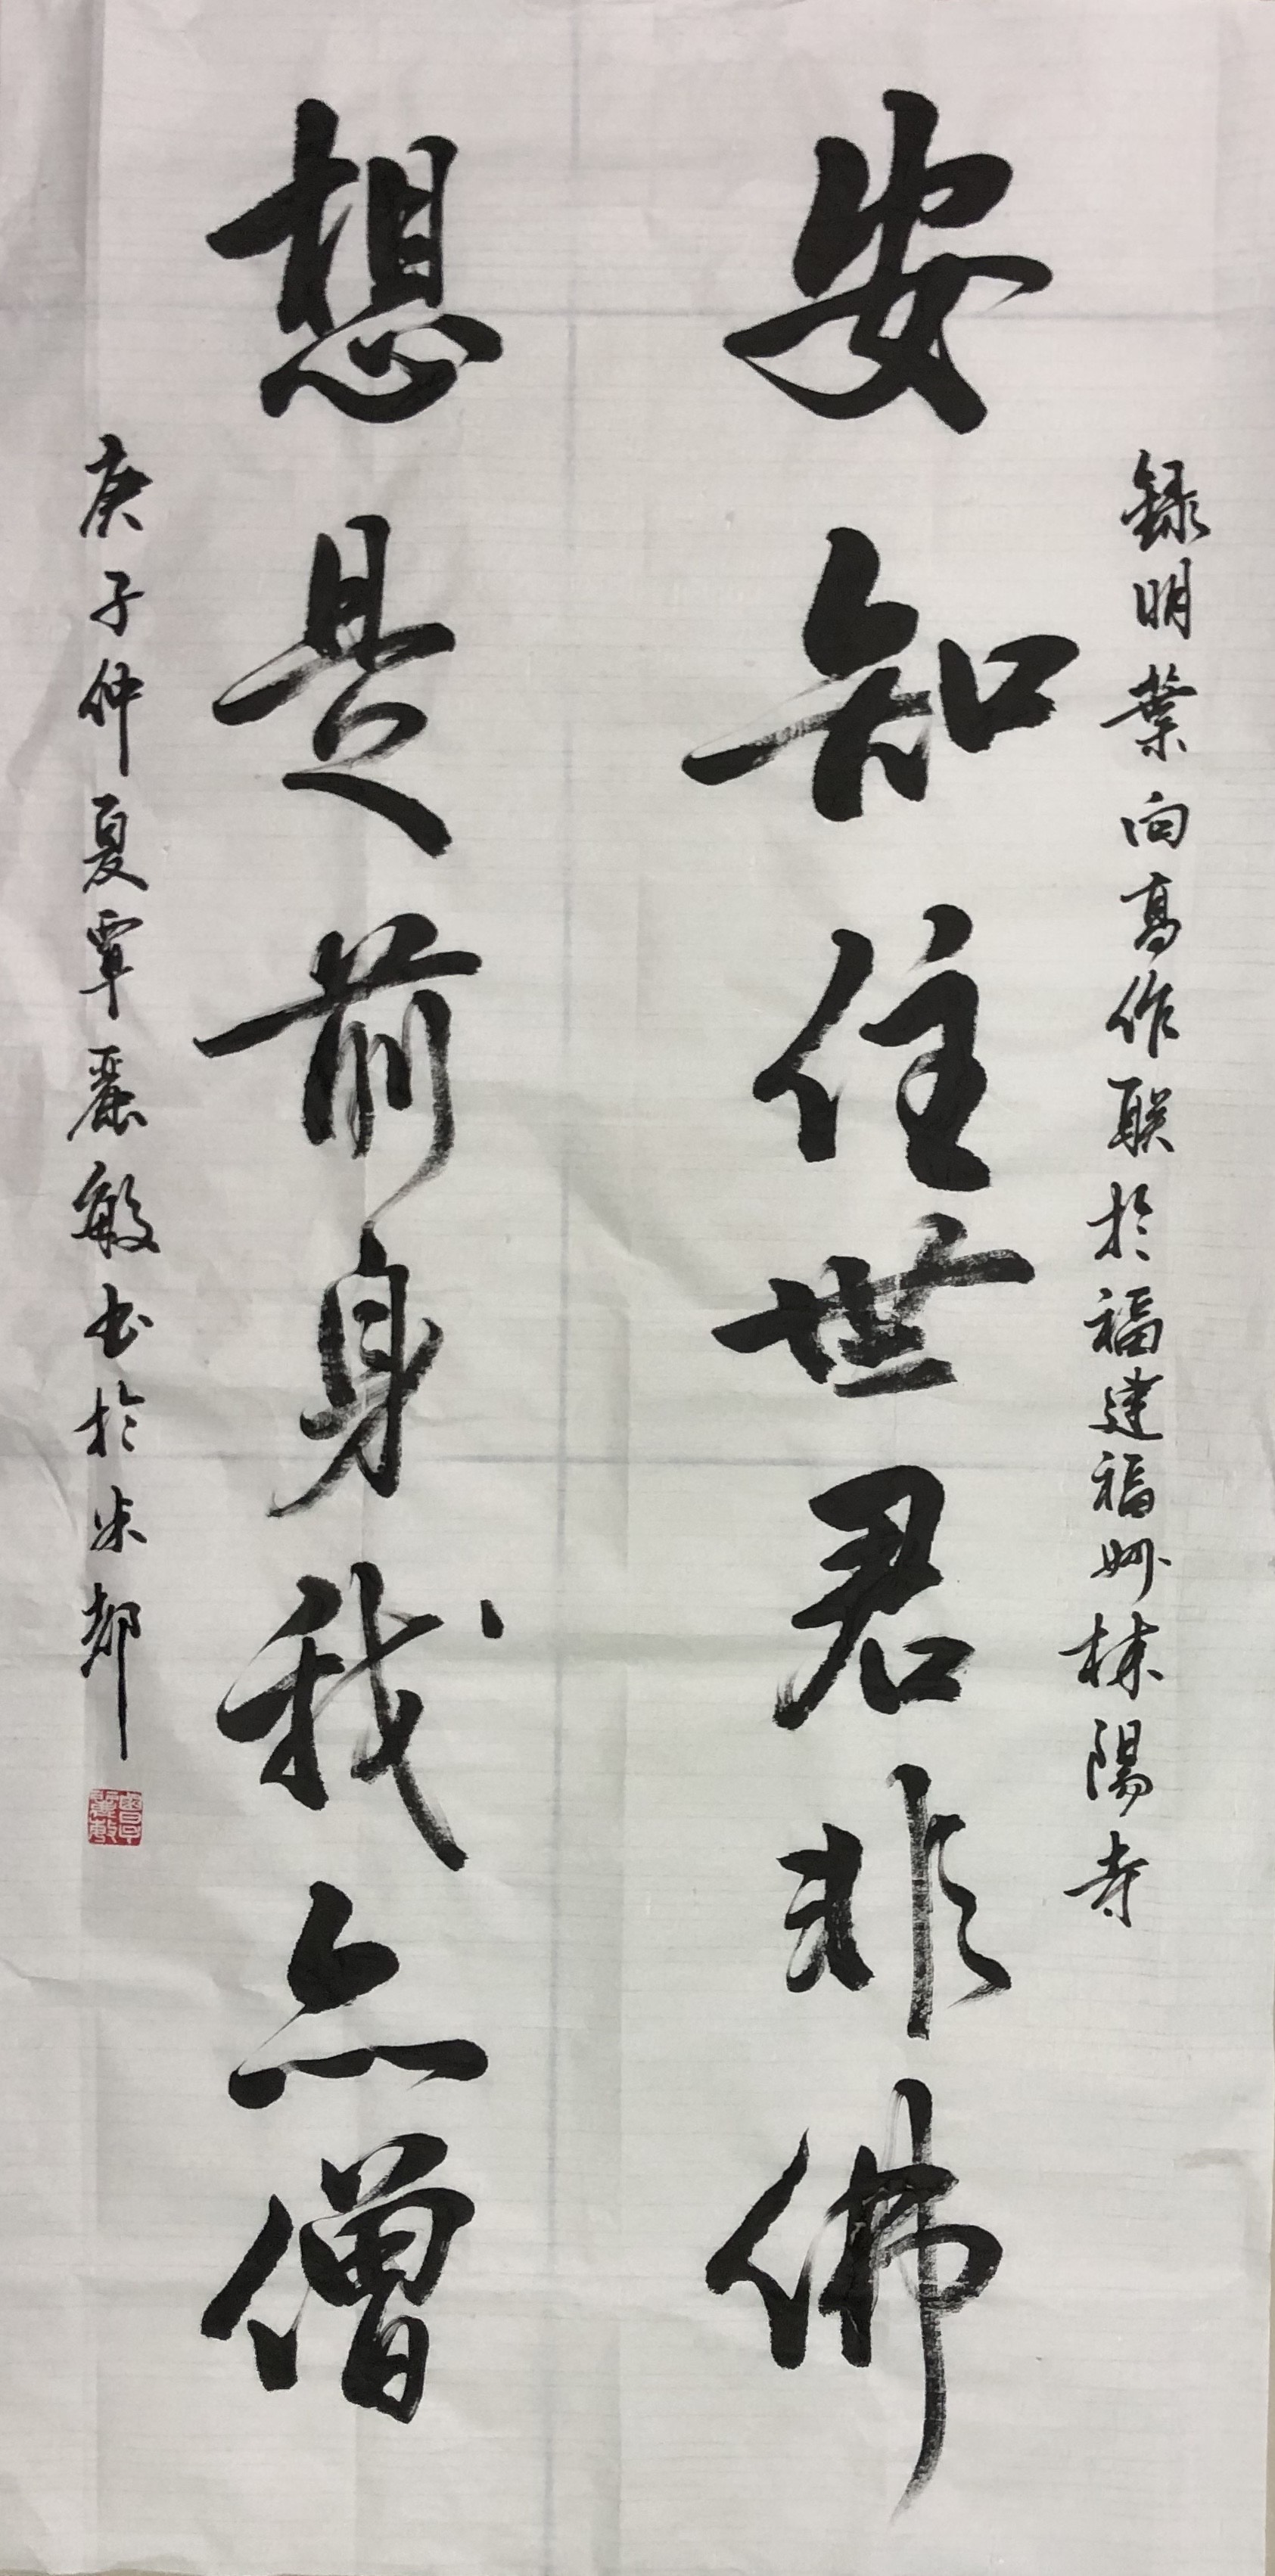 録明葉向高作联於福建福州林陽寺
安知住世君非佛
想是前身我亦僧
庚子仲夏覃麗敏书於米都
覃麗敏